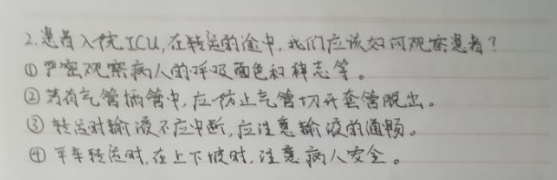 2.患者入住ICU,在转运的途中,我们应该如何观察患者?
①严密观察病人的呼吸面色和神志等。
②若有气管插管中,应防止气管切开套管脱出。
③转运时输液不应中断,应注意输液的通畅。
④平车转运时,在上下坡时,注意病人安全。